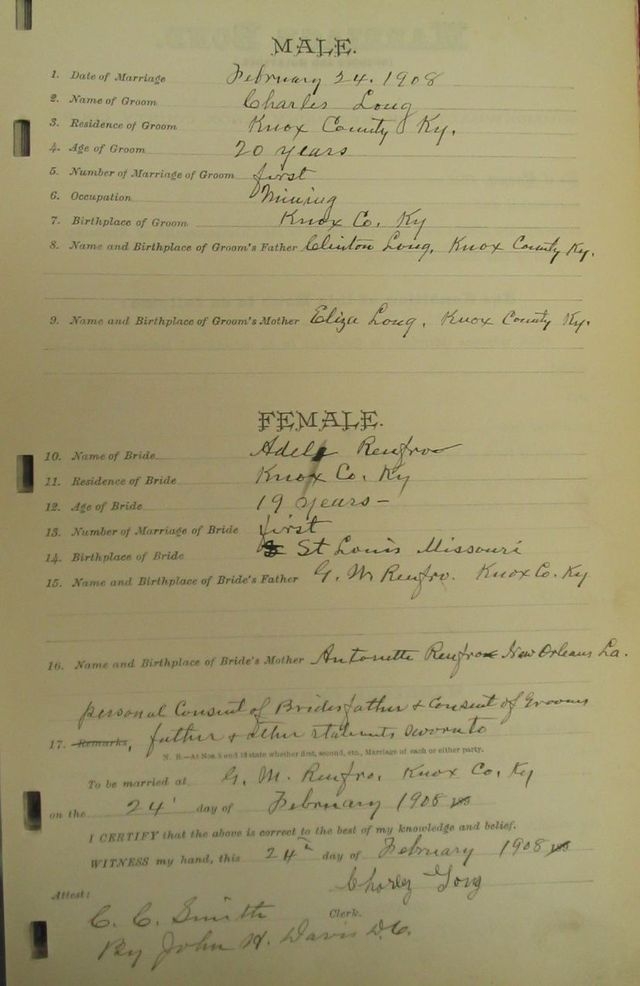 MALE.
1. Date of Marriage February 24. 1908
2. Name of Groom Charles Long
3. Residence of Groom Knox County Ky.
4. Age of Groom 20 years
5. Number of Marriage of Groom first
6. Occupation Mining
7. Birthplace of Groom Knox Co. Ky
8. Name and Birthplace of Groom's Father Clinton Long, Knox County Ky.
9. Name and Birthplace of Groom's Mother Eliza Long, Knox County Ky.
FEMALE.
10. Name of Bride Adele Renfro
11. Residence of Bride Knox Co. Ky
12. Age of Bride 19 years –
13. Number of Marriage of Bride first
14. Birthplace of Bride St Louis Missouri
15. Name and Birthplace of Bride's Father G. M Renfro. Knox Co. Ky
16. Name and Birthplace of Bride's Mother Antonette Renfro New Orleans La.
personal Consent of Brides father & Consent of Grooms
17. Remarks, father & other statements sworn to
N. B.—At Nos. 5 and 13 state whether first, second, etc., Marriage of each or either party.
To be married at G. M. Renfro. Knox Co. Ky
on the 24 day of February 1908
I CERTIFY that the above is correct to the best of my knowledge and belief.
WITNESS my hand, this 24th day of February 1908
Charley Long
Attest:
C. C. Smith Clerk.
By John H. Davis D.C.